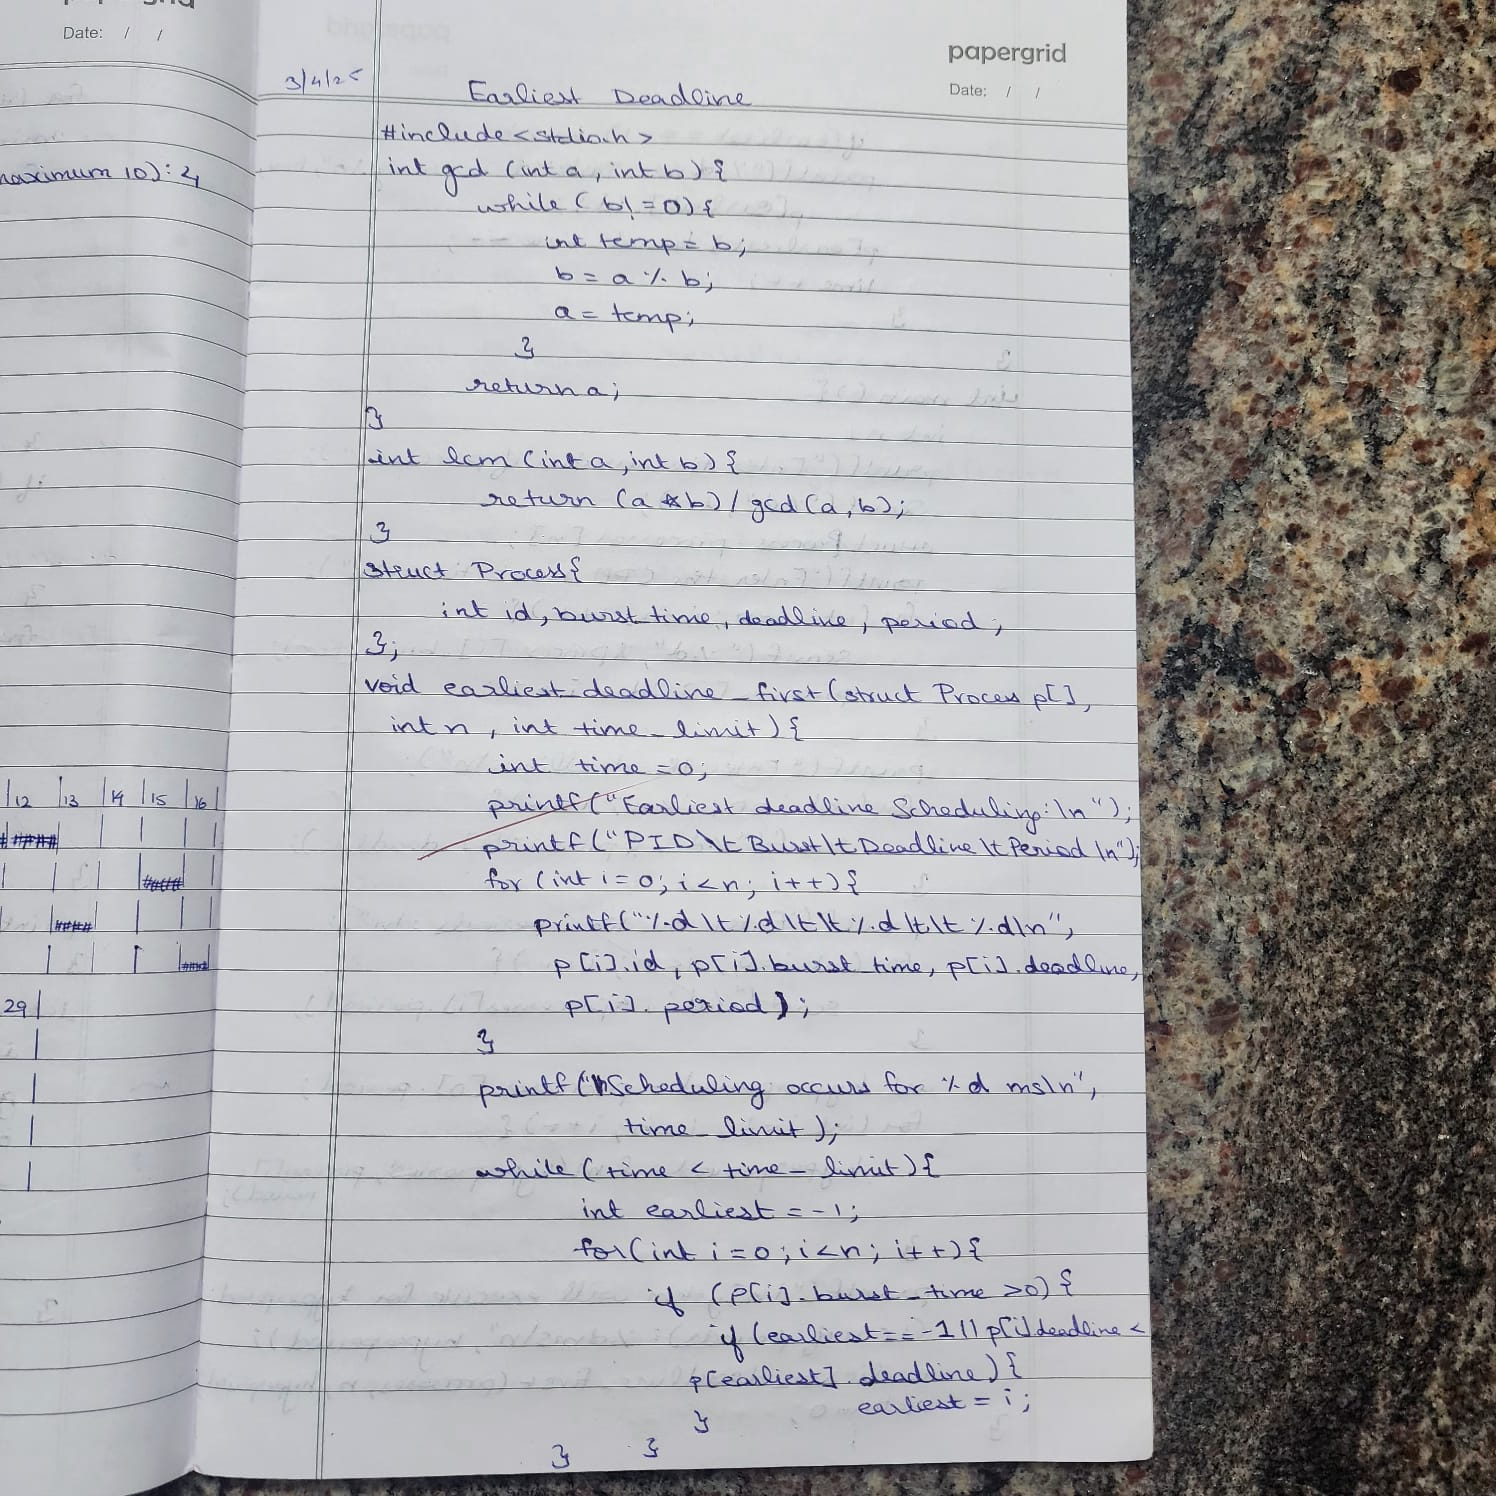 Date: / /
maximum 10): 2
12 13 14 15 16
29
papergrid
Date: / /
3/4/25
Earliest Deadline
#include <stdio.h>
int gcd (int a, int b) {
while (b! = 0) {
int temp = b;
b = a % b;
a = temp;
}
return a;
}
int lcm (int a, int b) {
return (a * b) / gcd (a, b);
}
struct Process {
int id, burst_time, deadline, period;
};
void earliest_deadline_first (struct Process p[],
int n, int time_limit) {
int time = 0;
printf ("Earliest deadline Scheduling:\n");
printf ("PID\t Burst\t Deadline\t Period\n");
for (int i = 0; i < n; i++) {
printf ("%d\t %d\t\t %d\t\t %d\n",
p[i].id, p[i].burst_time, p[i].deadline,
p[i].period);
}
printf ("\nScheduling occurs for %d ms\n",
time_limit);
while (time < time_limit) {
int earliest = -1;
for (int i = 0; i < n; i++) {
if (p[i].burst_time > 0) {
if (earliest == -1 || p[i].deadline <
p[earliest].deadline) {
earliest = i;
}
}
}